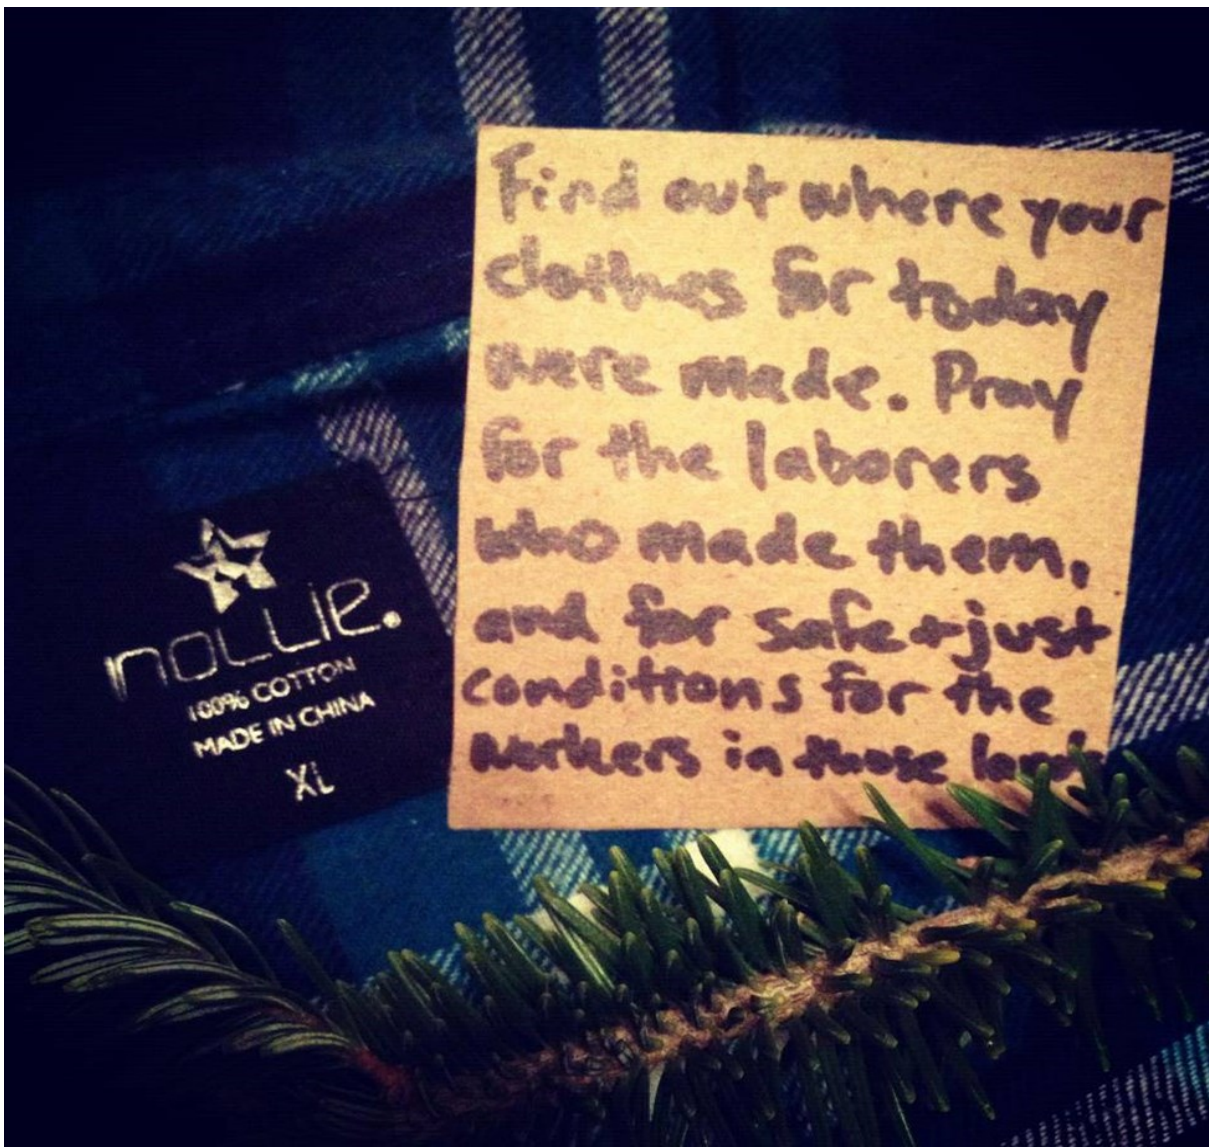 Find out where your
clothes for today
were made. Pray
for the laborers
who made them,
and for safe + just
conditions for the
workers in those lands
nollie.
100% COTTON
MADE IN CHINA
XL